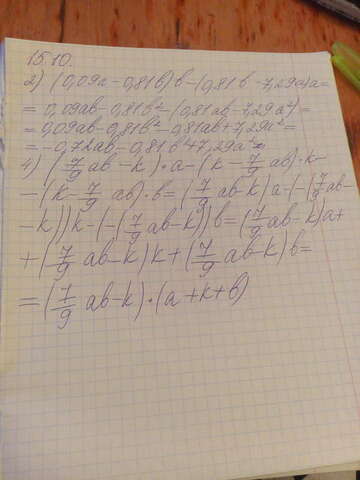 15.10.
2) (0,09a - 0,81b)b - (0,81b - 7,29a)a =
= 0,09ab - 0,81b² - (0,81ab - 7,29a²) =
= 0,09ab - 0,81b² - 0,81ab + 7,29a² =
= -0,72ab - 0,81b² + 7,29a²
4) (7/9 ab - k) · a - (k - 7/9 ab) · k -
- (k - 7/9 ab) · b = (7/9 ab - k)a - (-(7/9 ab -
- k))k - (-(7/9 ab - k))b = (7/9 ab - k)a +
+ (7/9 ab - k)k + (7/9 ab - k)b =
= (7/9 ab - k) · (a + k + b)